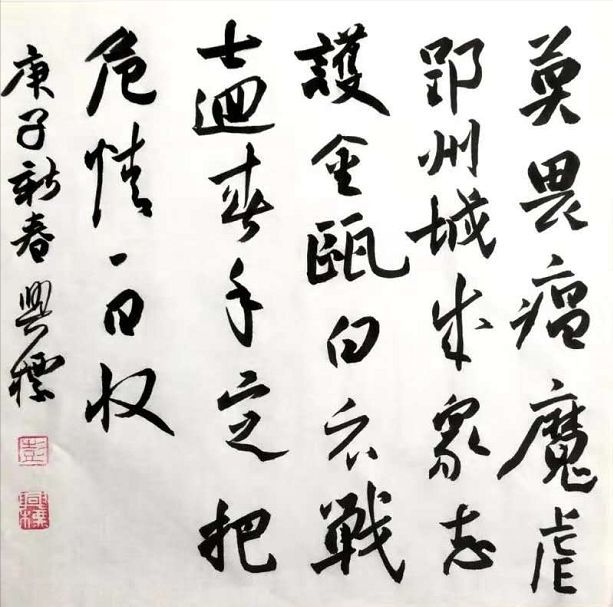 莫畏瘟魔虐
郢州城成衆志
護金甌白衣戰
士迴春手定把
危情一日收
庚子新春 興標
彭
興標